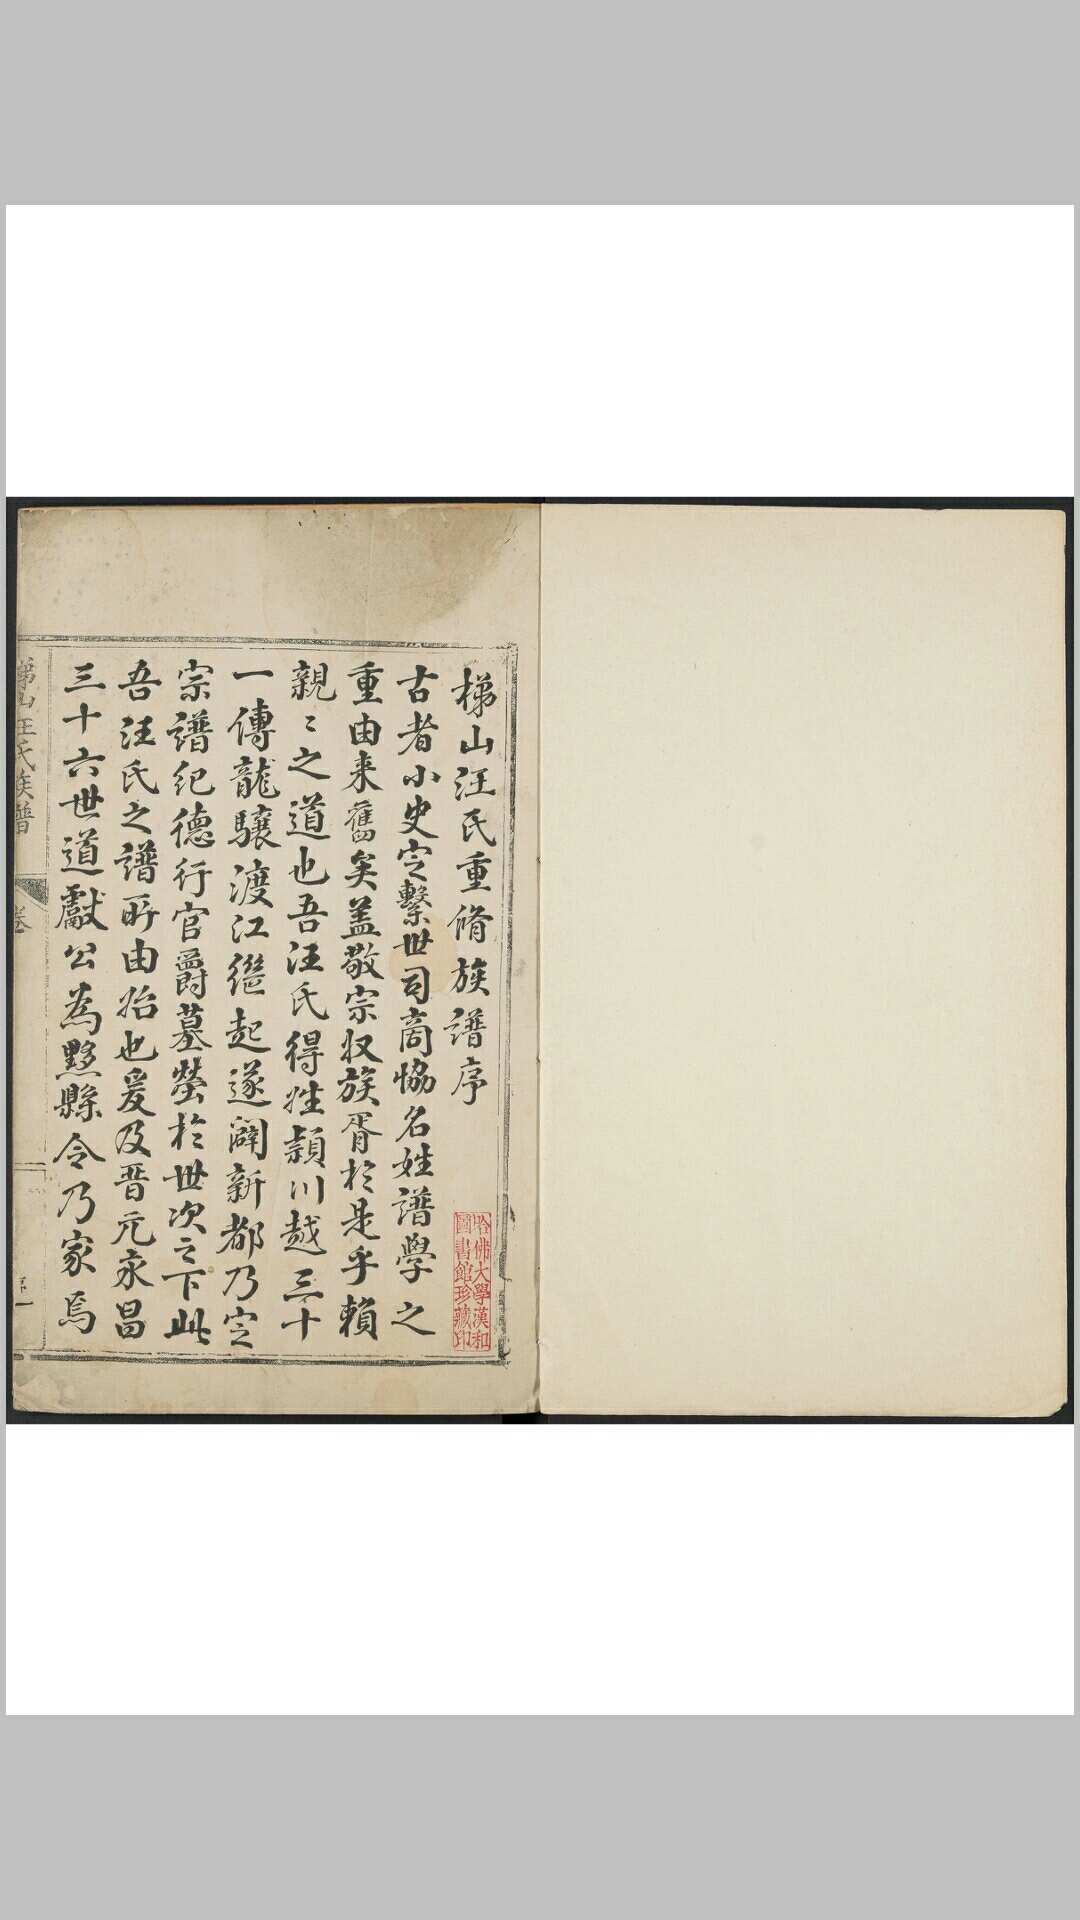 梯山汪氏重脩族譜序
古者小史定繫世司商協名姓譜學之
重由来舊矣盖敬宗収族胥於是乎賴
親〻之道也吾汪氏得姓頴川越三十
一傳龍驤渡江繼起遂闢新都乃定
宗譜紀德行官爵墓塋於世次之下此
吾汪氏之譜所由始也爰及晋元永昌
三十六世道獻公為黟縣令乃家焉
梯山汪氏族譜 卷 序 一
哈佛大學漢和
圖書館珍藏印